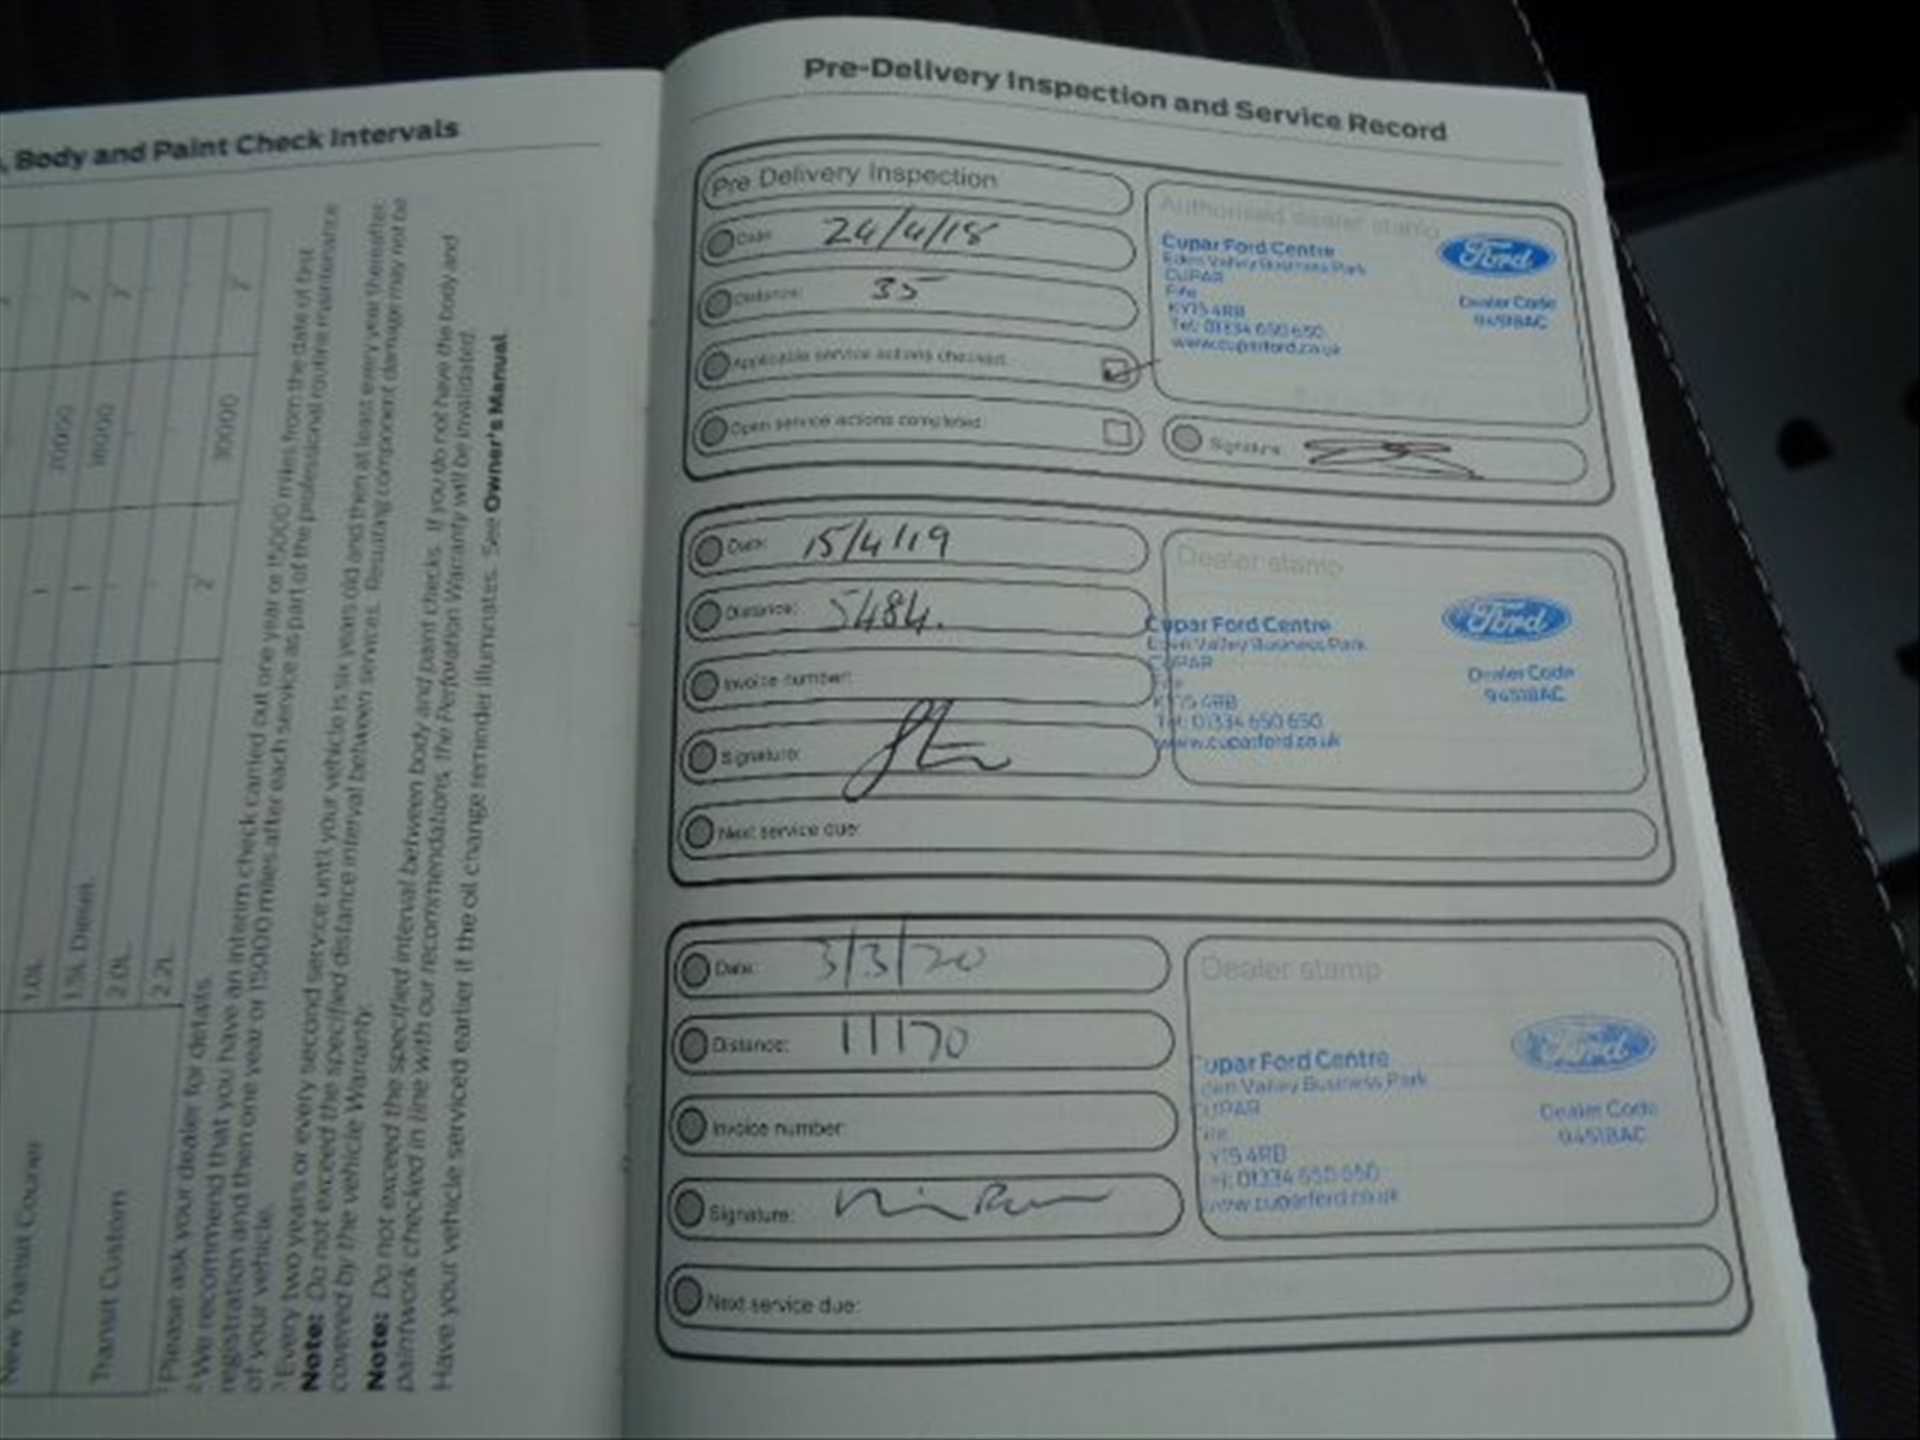 Body and Paint Check Intervals
20000
18000
30000
1.0L
1.5L Diesel
2.0L
2.2L
New Transit Courier
Transit Custom
Please ask your dealer for details.
We recommend that you have an interim check carried out one year or 15000 miles from the date of first
registration and then one year or 15000 miles after each service as part of the professional routine maintenance
of your vehicle.
Every two years or every second service until your vehicle is six years old and then at least every year thereafter.
Note: Do not exceed the specified distance interval between services. Resulting component damage may not be
covered by the vehicle Warranty.
Note: Do not exceed the specified interval between body and paint checks. If you do not have the body and
paintwork checked in line with our recommendations, the Perforation Warranty will be invalidated.
Have your vehicle serviced earlier if the oil change reminder illuminates. See Owner's Manual.
Pre-Delivery Inspection and Service Record
Pre Delivery Inspection
Date: 24/4/18
Distance: 35
Applicable service actions checked:
Open service actions completed:
Authorised dealer stamp
Cupar Ford Centre
Eden Valley Business Park
CUPAR
Fife
KY15 4RB
Tel: 01334 650 650
www.cuparford.co.uk
Ford
Dealer Code
94518AC
Signature:
Date: 15/4/19
Distance: 5484.
Invoice number:
Signature:
Next service due:
Dealer stamp
Cupar Ford Centre
Eden Valley Business Park
CUPAR
Fife
KY15 4RB
Tel: 01334 650 650
www.cuparford.co.uk
Ford
Dealer Code
94518AC
Date: 3/3/20
Distance: 11170
Invoice number:
Signature:
Next service due:
Dealer stamp
Cupar Ford Centre
Eden Valley Business Park
CUPAR
Fife
KY15 4RB
Tel: 01334 650 650
www.cuparford.co.uk
Ford
Dealer Code
94518AC